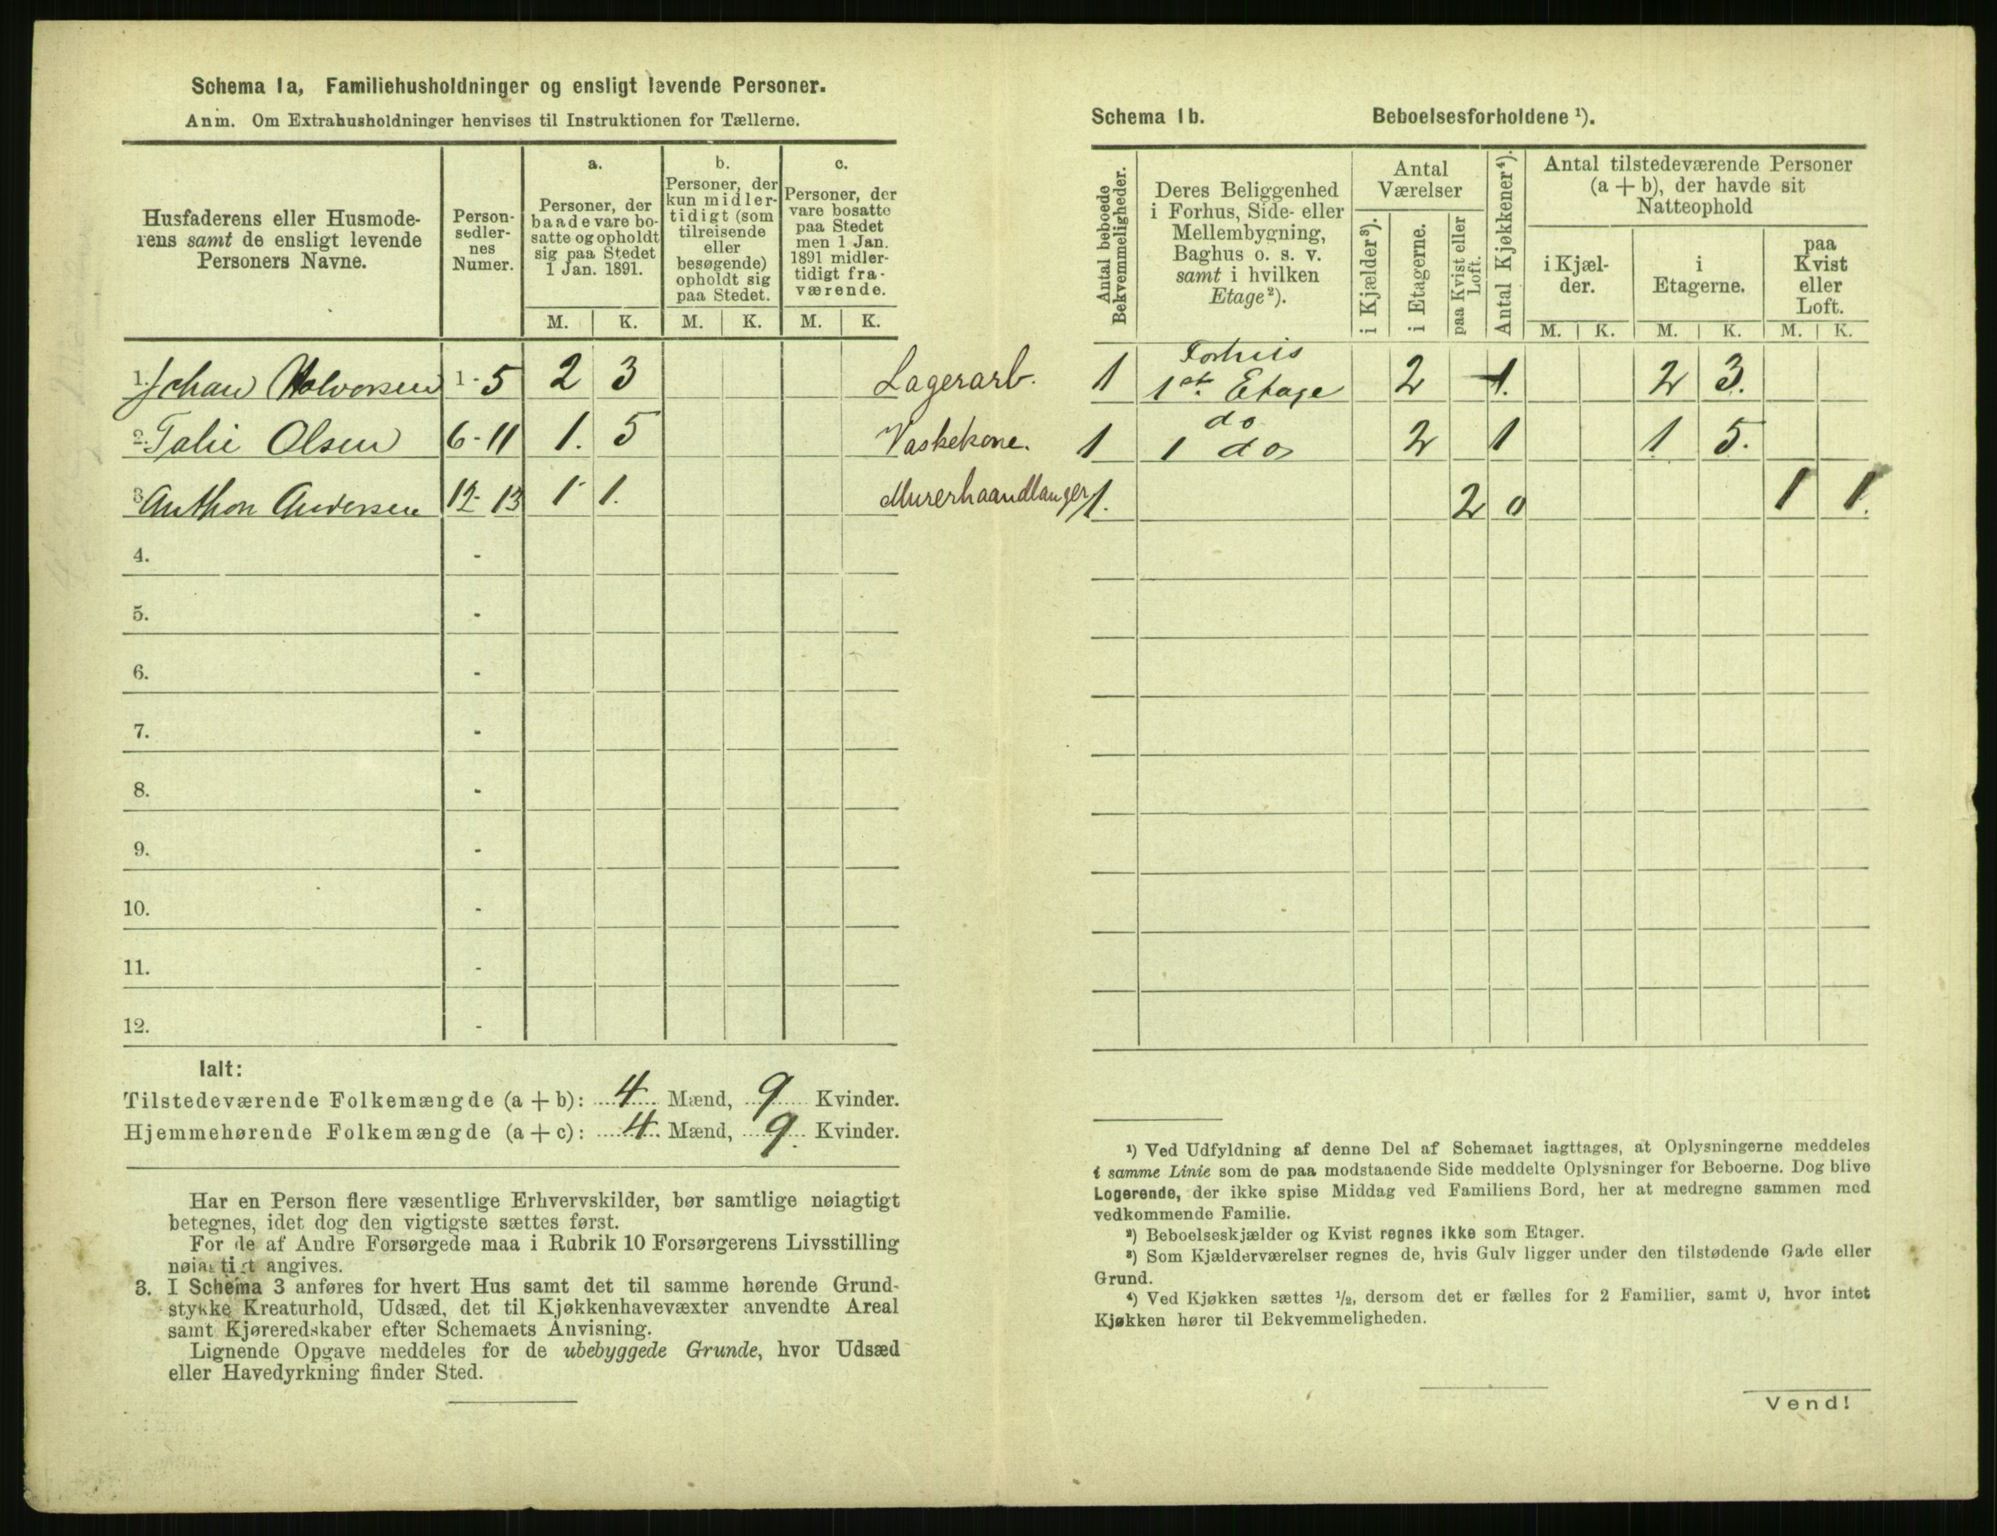 Schema 1a, Familiehusholdninger og ensligt levende Personer.
Anm. Om Extrahusholdninger henvises til Instruktionen for Tællerne.
Husfaderens eller Husmoderens samt de ensligt levende Personers Navne.
Personsedlernes Numer.
a.
Personer, der baade vare bosatte og opholdt sig paa Stedet 1 Jan. 1891.
b.
Personer, der kun midlertidigt (som tilreisende eller besøgende) opholdt sig paa Stedet.
c.
Personer, der vare bosatte paa Stedet men 1 Jan. 1891 midlertidigt fraværende.
M. K. M. K. M. K.
1. Johan Halvorsen 1-5 2 3 Lagerarb.
2. Talie Olsen 6-11 1. 5 Vaskekone.
3. Anthon Andersen 12-13 1 1. Murerhaandlanger
4. -
5. -
6. -
7. -
8. -
9. -
10. -
11. -
12. -
Ialt:
Tilstedeværende Folkemængde (a + b): 4 Mænd, 9 Kvinder.
Hjemmehørende Folkemængde (a + c): 4 Mænd, 9. Kvinder.
Har en Person flere væsentlige Erhvervskilder, bør samtlige nøiagtigt
betegnes, idet dog den vigtigste sættes først.
For de af Andre Forsørgede maa i Rubrik 10 Forsørgerens Livsstilling
nøiagtigt angives.
3. I Schema 3 anføres for hvert Hus samt det til samme hørende Grund-
stykke Kreaturhold, Udsæd, det til Kjøkkenhavevæxter anvendte Areal
samt Kjøreredskaber efter Schemaets Anvisning.
Lignende Opgave meddeles for de ubebyggede Grunde, hvor Udsæd
eller Havedyrkning finder Sted.
Schema 1b. Beboelsesforholdene ¹).
Antal beboede Bekvemmeligheder.
Deres Beliggenhed i Forhus, Side- eller Mellembygning, Baghus o. s. v. samt i hvilken Etage²).
Antal Værelser
i Kjælder³).
i Etagerne.
paa Kvist eller Loft.
Antal Kjøkkener⁴).
Antal tilstedeværende Personer (a + b), der havde sit Natteophold
i Kjælder.
i Etagerne.
paa Kvist eller Loft.
M. K. M. K. M. K.
1 Forhus 1ste Etage 2 1. 2 3.
1 do 1 do 2 1 1 5.
1. 2 0 1 1.
¹) Ved Udfyldning af denne Del af Schemaet iagttages, at Oplysningerne meddeles
i samme Linie som de paa modstaaende Side meddelte Oplysninger for Beboerne. Dog blive
Logerende, der ikke spise Middag ved Familiens Bord, her at medregne sammen med
vedkommende Familie.
²) Beboelseskjælder og Kvist regnes ikke som Etager.
³) Som Kjælderværelser regnes de, hvis Gulv ligger under den tilstødende Gade eller
Grund.
⁴) Ved Kjøkken sættes ½, dersom det er fælles for 2 Familier, samt 0, hvor intet
Kjøkken hører til Bekvemmeligheden.
Vend!